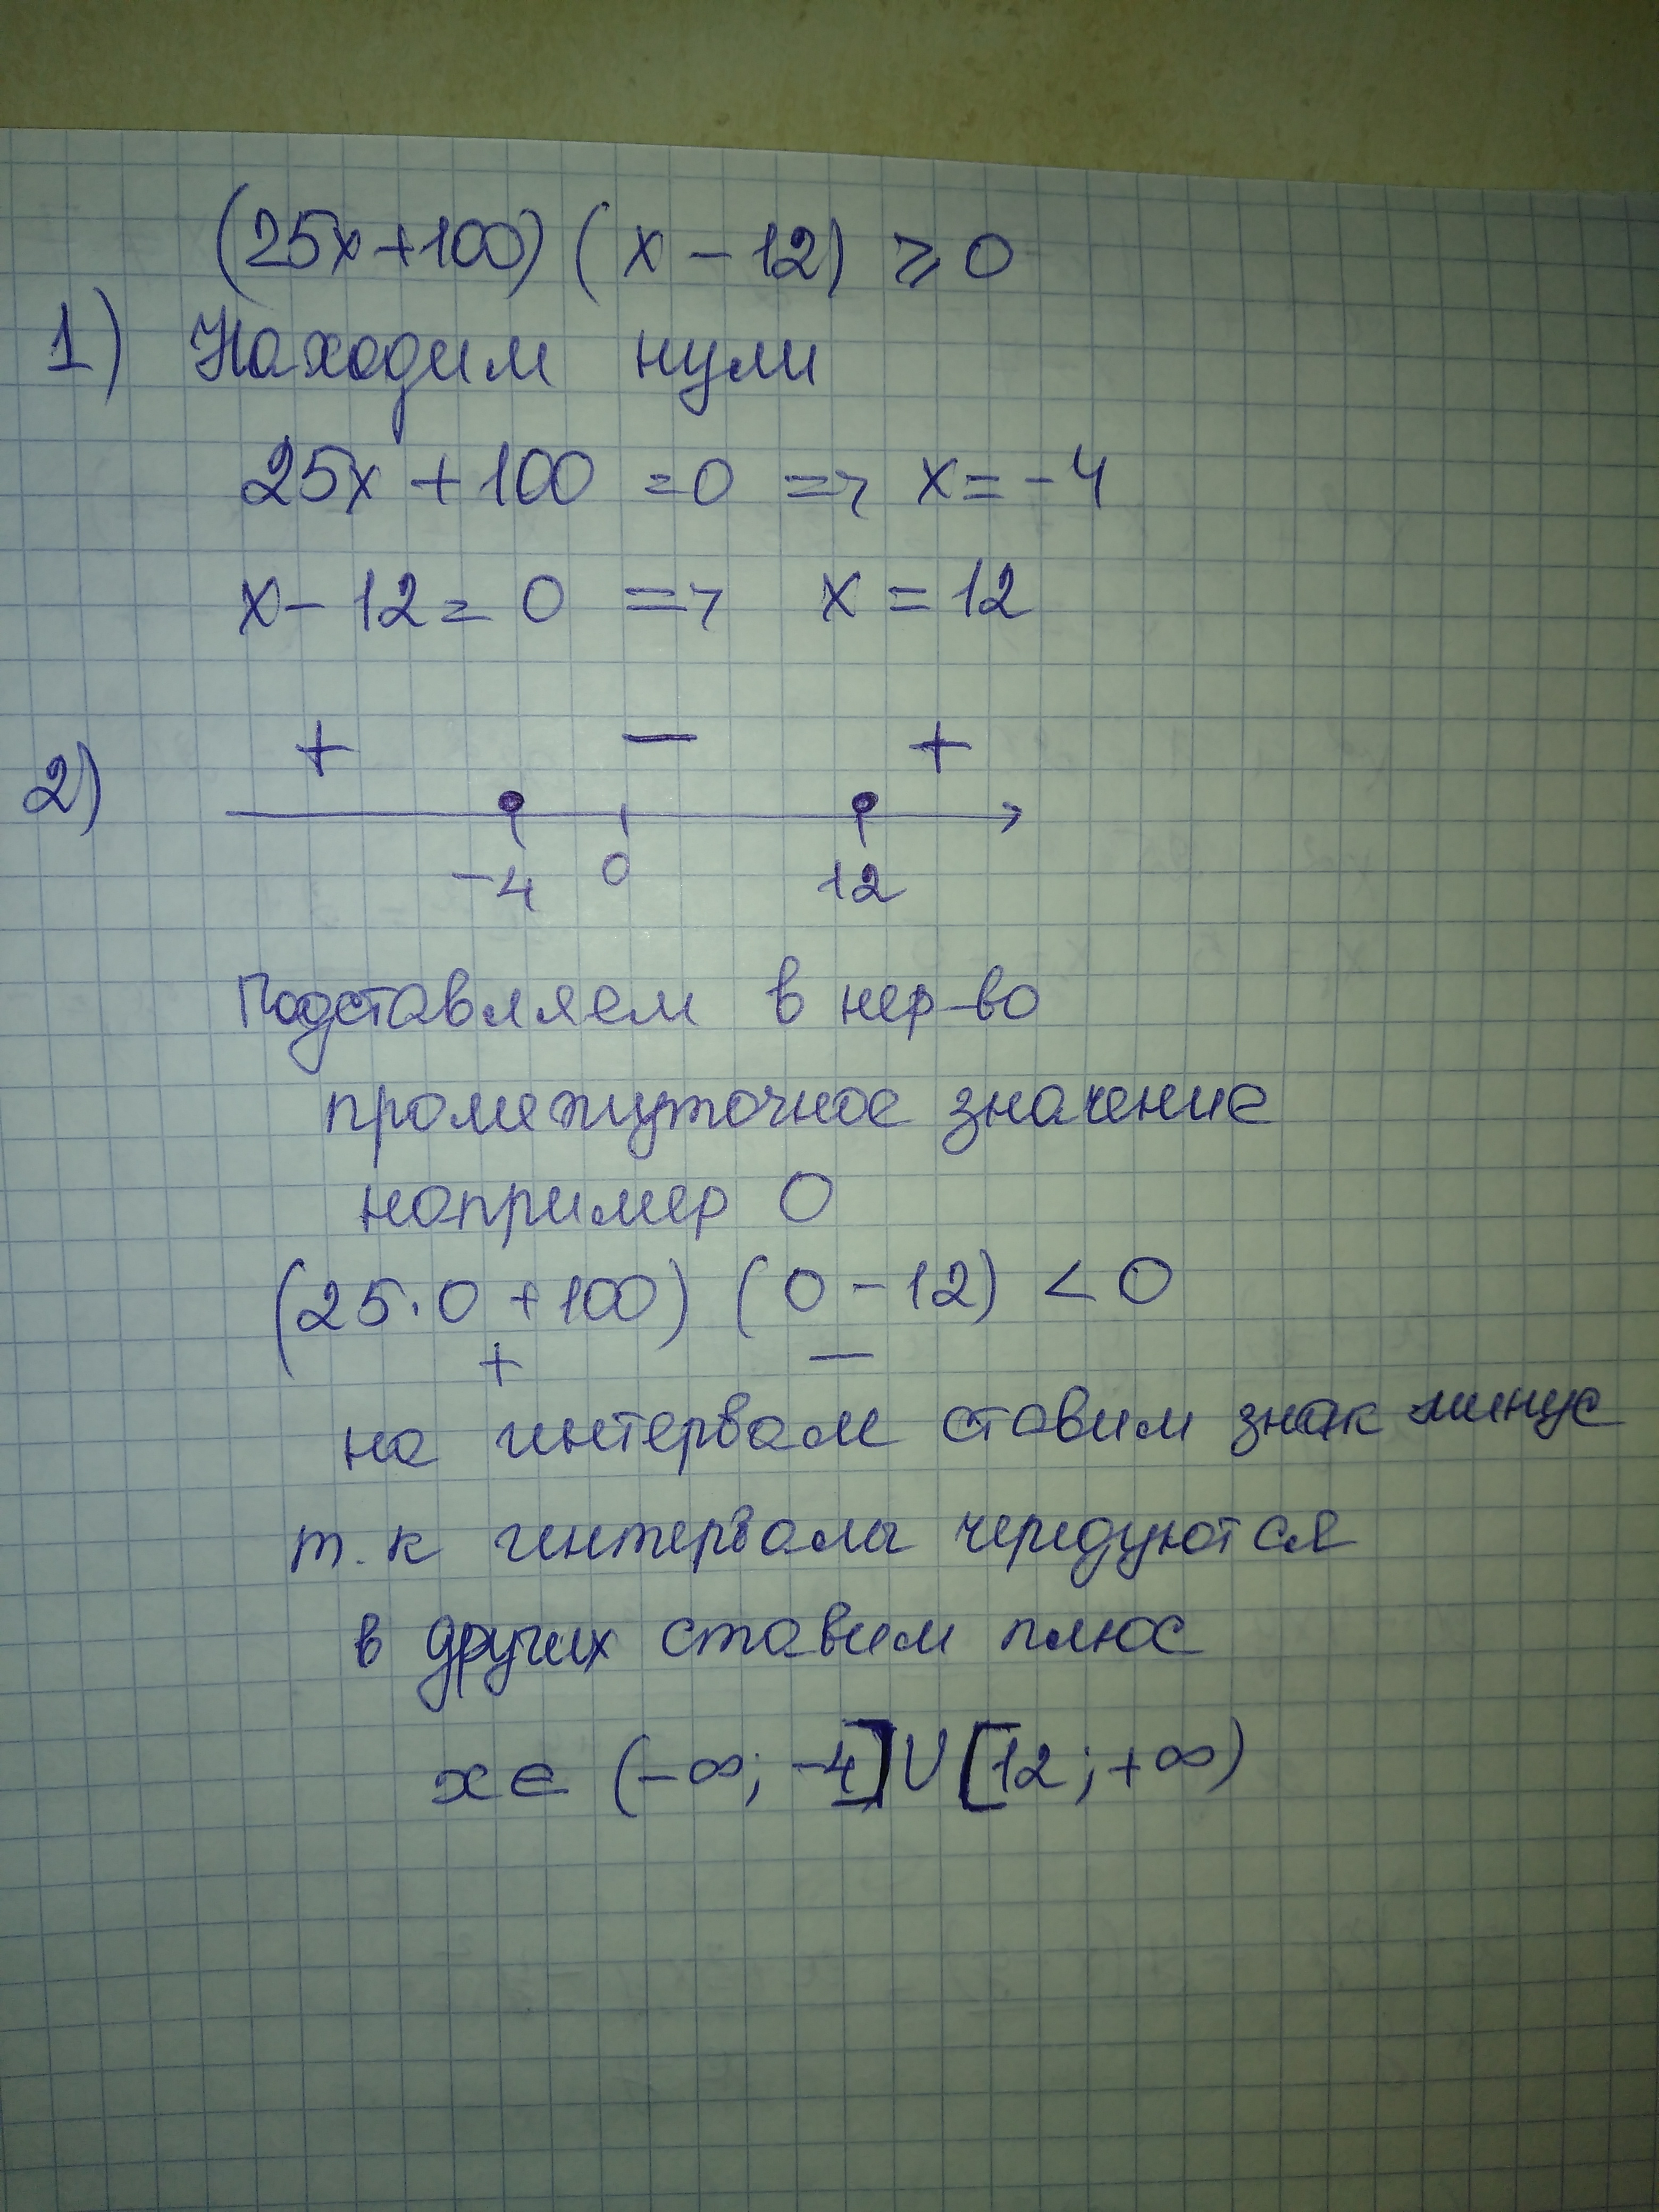 (25x+100)(x-12) ⩾ 0
1) Находим нули
25x+100=0 => x=-4
x-12=0 => x=12
+ - +
2)
-4 0 12
Подставляем в нер-во
промежуточное значение
например 0
(25·0+100)(0-12)<0
+ -
на интервале ставим знак минус
т.к интервалы чередуются
в других ставим плюс
x∈(-∞;-4]∪[12;+∞)